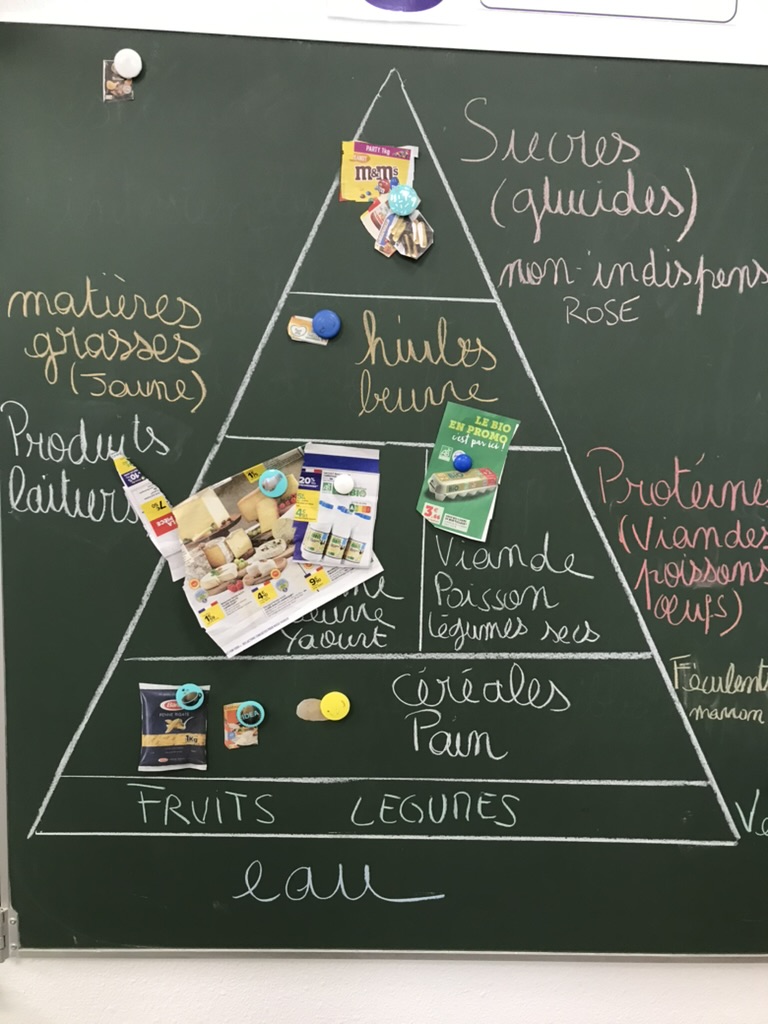 PARTY 1kg
m&m's
Sucres
(glucides)
non-indispens
ROSE
matières
grasses
(Jaune)
huiles
beurre
Produits
laitiers
LE BIO
EN PROMO
c'est par ici !
Protéines
(Viandes
poissons
œufs)
20%
Viande
Poisson
légumes secs
Yaourt
Féculent
marron
céréales
Pain
1Kg
IDEA
FRUITS LEGUMES
Ve
eau